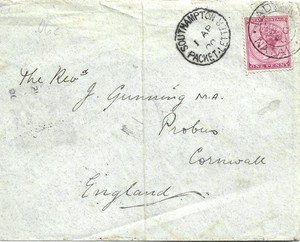 SOUTHAMPTON
PACKET-LETTER
1 AP
The Revd
J. Gunning M.A.
Probus
Cornwall
England
ONE PENNY